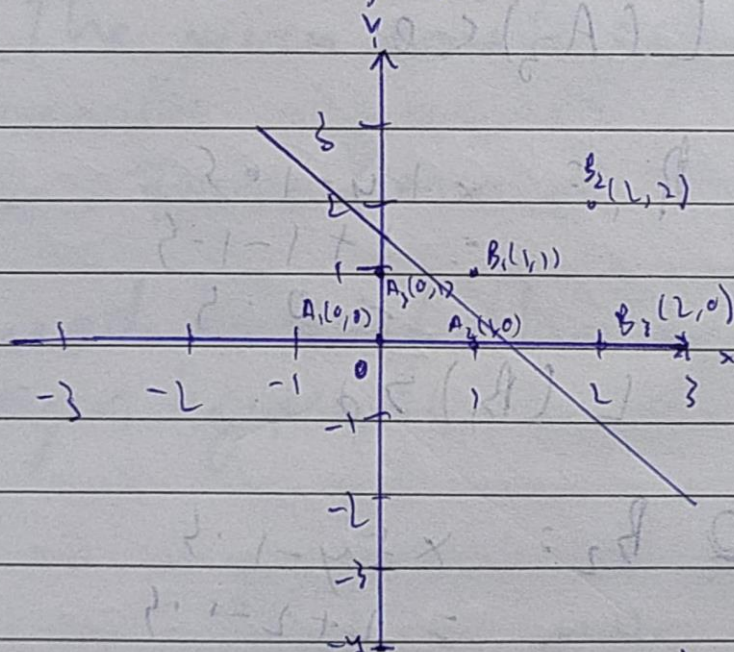 y
3
B₂(2,2)
2
1
B₁(1,1)
A₃(0,1)
A₁(0,0)
A₂(1,0)
B₃(2,0)
-3
-2
-1
0
1
2
3
x
-1
-2
-3
-4